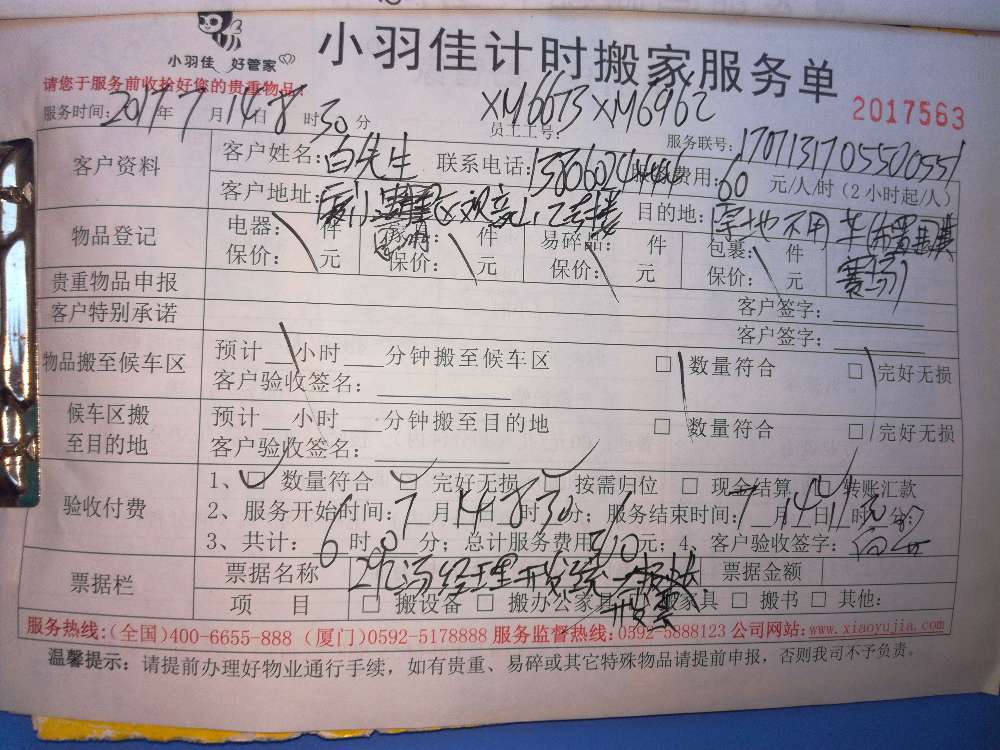 小羽佳 好管家
小羽佳计时搬家服务单
请您于服务前收拾好您的贵重物品!
2017563
服务时间: 2017年7月14日8时30分 员工工号: XM6673 XM6962 服务联号: 1707131705520551
客户资料
客户姓名: 白先生 联系电话: 费用: 60 元/人/时 (2小时起/人)
客户地址: 目的地: 原地不用车
物品登记
电器: 件 件 易碎品: 件 包裹: 件
保价: 元 保价: 元 保价: 元 保价: 元
赛场)
贵重物品申报 客户签字:
客户特别承诺 客户签字:
物品搬至候车区
预计 小时 分钟搬至候车区 □ 数量符合 □ 完好无损
客户验收签名:
候车区搬至目的地
预计 小时 分钟搬至目的地 □ 数量符合 □ 完好无损
客户验收签名:
验收付费
1、□ 数量符合 □ 完好无损 □ 按需归位 □ 现金结算 □ 转账汇款
2、服务开始时间: 7月14日8时30分; 服务结束时间: 7月14日11时30分;
3、共计: 6时0分; 总计服务费用 元; 4、客户验收签字:
票据栏
票据名称 票据金额
项 目 □ 搬设备 □ 搬办公家具 □ 搬家具 □ 搬书 □ 其他:
开发票
服务热线:(全国)400-6655-888 (厦门)0592-5178888 服务监督热线:0592-5888123 公司网站:www.xiaoyujia.com
温馨提示: 请提前办理好物业通行手续, 如有贵重、易碎或其它特殊物品请提前申报, 否则我司不予负责。